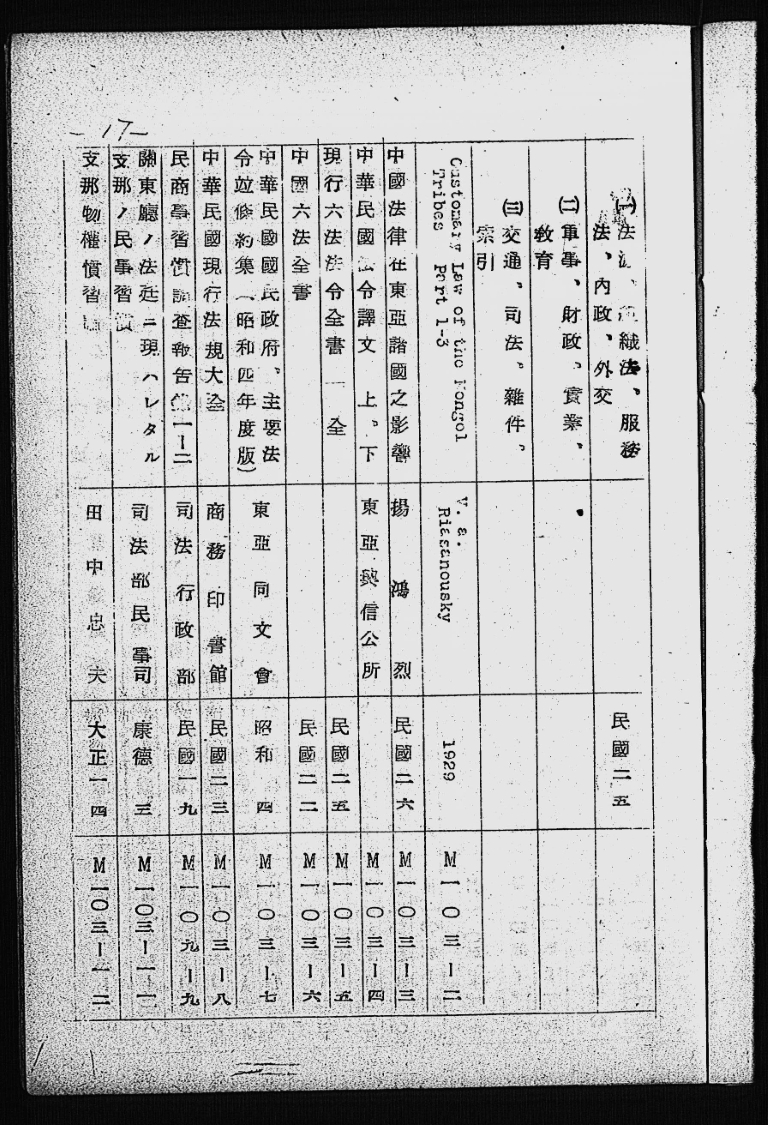 -17-
㈠法　、　織法、服務
法、內政、外交
民國二五
㈡軍事、財政、實業、
敎育
㈢交通、司法、雜件、
索引
Customary Law of the Mongol
Tribes Part 1-3
V. a.
Riasanousky
1929
M一〇三-二
中國法律在東亞諸國之影響
揚鴻烈
民國二六
M一〇三-三
中華民國法令譯文　上。下
東亞興信公所
M一〇三-四
現行六法法令全書　一全
民國二五
M一〇三-五
中國六法全書
民國二二
M一〇三-六
中華民國國民政府、主要法
令竝條約集（昭和四年度版）
東亞同文會
昭和四
M一〇三-七
中華民國現行法規大全
商務印書館
民國二三
M一〇三-八
民商事習慣調查報告錄一-二
司法行政部
民國一九
M一〇九-九
關東廳ノ法廷ニ現ハレタル
支那ノ民事習慣
司法部民事司
康德三
M一〇三-一一
支那物權慣習
田中忠夫
大正一四
M一〇三-一二